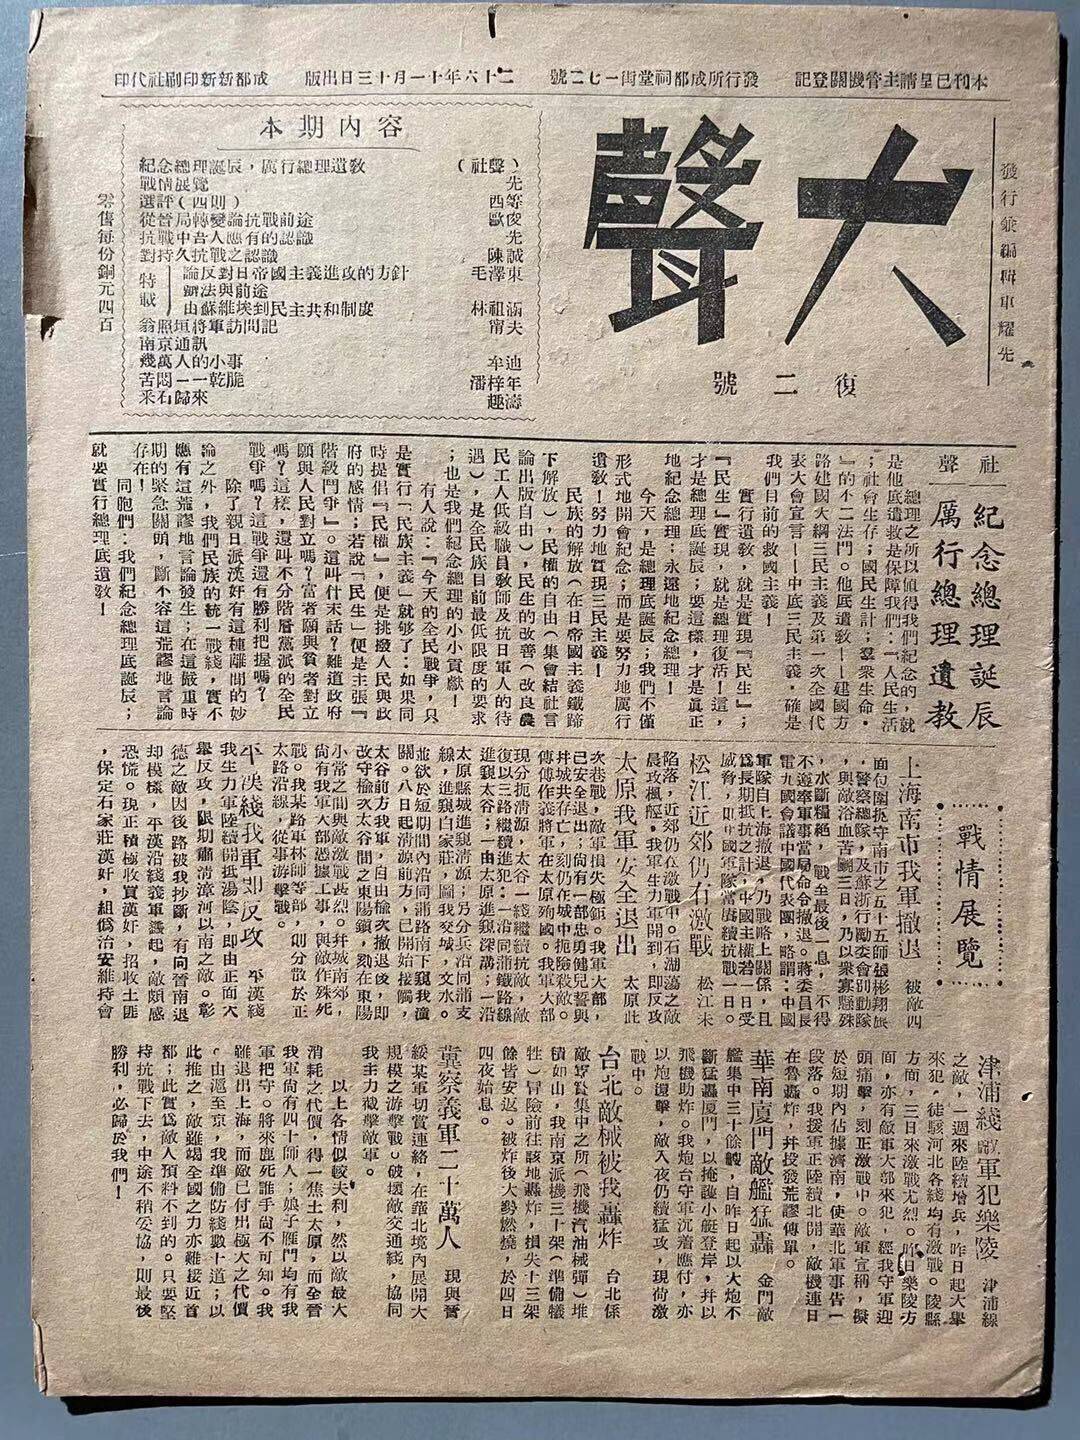 本刊已呈請主管機關登記 發行所成都祠堂街一七二號 二十六年十一月十三日出版 成都新新印刷社代印
發行兼編輯車耀先
大聲
復二號
本期內容
紀念總理誕辰，厲行總理遺敎（社聲）
戰情展覽 先
選評（四則） 西等
從晉局轉變論抗戰前途 歐俊
抗戰中吾人應有的認識 先
對持久抗戰之認識 陳誠
特載
論反對日帝國主義進攻的方針
辦法與前途 毛澤東
由蘇維埃到民主共和制度 林祖涵
翁照垣將軍訪問記 甯夫
南京通訊
幾萬人的小事 牟迪
苦悶－－乾脆 潘梓年
釆石歸來 趣濤
零售每份銅元四百
社聲
紀念總理誕辰
厲行總理遺教
總理之所以値得我們紀念的，就
是他底遺敎是保障我們：「人民生活
；社會生存；國民生計；羣衆生命。
』的不二法門。他底遺敎－－建國方
路建國大綱三民主義及第一次全國代
表大會宣言－－中底三民主義，確是
我們目前的救國主義！
實行遺敎，就是實現『民生』；
『民生』實現，就是總理復活！這，
才是總理底誕辰；要這樣，才是眞正
地紀念總理；永遠地紀念總理！
今天，是總理底誕辰；我們不僅
形式地開會紀念；而是要努力地厲行
遺敎！努力地實現三民主義！
民族的解放（在日帝國主義鐵蹄
下解放），民權的自由（集會結社言
論出版自由），民生的改善（改良農
民工人低級職員敎師及抗日軍人的待
遇），是全民族目前最低限度的要求
；也是我們紀念總理的小小貢獻！
有人說：『今天的全民戰爭，只
是實行「民族主義」就够了：如果同
時提倡『民權』，便是挑撥人民與政
府的感情；若說「民生」便是主張『
階級鬥爭』。這叫什末話？難道政府
願與人民對立嗎？富者願與貧者對立
嗎？這樣，還叫不分階層黨派的全民
戰爭嗎？這戰爭還有勝利把握嗎？
除了親日派漢奸有這種離間的妙
論之外，我們民族的統一戰綫，實不
應有這荒謬地言論發生；在這嚴重時
期的緊急關頭，斷不容這荒謬地言論
存在！
同胞們：我們紀念總理底誕辰；
就要實行總理底遺敎！
戰情展覽
上海南市我軍撤退 被敵四
面包圍扼守南市之五十五師張彬翔旅
，警察總隊，及蘇浙行動委會別動隊
，與敵浴血苦鬬三日，乃以衆寡懸殊
，水斷糧絕，戰至最後一息，不得
不遵奉軍事當局命令撤退。蔣委員長
電九國會議中國代表團，略謂：中國
軍隊自上海撤退，乃戰略上關係，且
爲長期抵抗之計，中國主權若一日受
威脅，卽中國軍隊當賡續抗戰一日。
松江近郊仍有激戰 松江未
陷落，近郊仍在激戰中。石湖蕩之敵
晨攻楓經，我軍生力軍開到，卽反攻
太原我軍安全退出 太原此
次巷戰，敵軍損失極鉅。我軍大部，
已安全退出；尙有一部忠勇健兒誓與
幷城共存亡，刻仍在城中扼險殺敵。
傳傅作義將軍在太原殉國。我軍大部
現分扼淸源，太谷一綫繼續抗敵，敵
復以三路繼續進犯：一沿同蒲鐵路線
進窺太谷；一由太原進窺深溝；一沿
太原縣城進窺淸源；另分兵沿同蒲支
線，進窺白家莊，圖我交城，文水。
並欲於短期間內沿同蒲路南下窺我潼
關。八日起淸源前方，已開始接觸，
太谷前方我軍，自由榆次撤退後，即
改守榆次太谷間之東陽鎮，刻在東陽
小常之間與敵激戰甚烈。幷城南郊，
尙有我軍大部憑據工事，與敵作殊死
戰。我某路軍林師等部，則分散於正
太路沿線，從事游擊戰。
平漢綫我軍卽反攻 平漢綫
我生力軍陸續開抵湯陰，即由正面大
舉反攻，限期肅淸漳河以南之敵。彰
德之敵因後路被我抄斷，有向晉南退
却模樣，平漢沿綫義軍蠭起，敵頗感
恐慌。現正積極收買漢奸，招收土匪
，保定石家莊漢奸，組僞治安維持會
津浦綫敵軍犯樂陵 津浦線
之敵，一週來陸續增兵，昨日起大舉
來犯，徒駭河北各綫均有激戰。陵縣
方面，三日來激戰尤烈。昨日樂陵方
面，亦有敵軍大部來犯，經我守軍迎
頭痛擊，刻正激戰中。敵軍宣稱，擬
於短期內佔據濟南，使華北軍事告一
段落。我援軍正陸續北開，敵機連日
在魯轟炸，幷投發荒謬傳單。
華南廈門敵艦猛轟 金門敵
艦集中三十餘艘，自昨日起以大炮不
斷猛轟厦門，以掩護小艇登岸，幷以
飛機助炸。我炮台守軍沉着應付，亦
以炮還擊，敵入夜仍續猛攻，現尙激
戰中。
台北敵械被我轟炸 台北係
敵軍實集中之所（飛機汽油械彈）堆
積如山，我南京派機三十架（準備犧
牲）冒險前往該地轟炸，損失十三架
餘皆安返。被炸後大勢燃燒，於四日
四夜始息。
冀察義軍二十萬人 現與晉
綏某軍切實連絡，在華北境內展開大
規模之游擊戰。破壞敵交通綫，協同
我主力截擊敵軍。
以上各情似較失利，然以敵最大
消耗之代價，得一焦土太原，而全晉
我軍尙有四十師人；娘子雁門均有我
軍把守。將來鹿死誰手尙不可知。我
雖退出上海，而敵已付出極大之代價
。由滬至京，我準備防綫數十道；以
此推之，敵雖竭全國之力亦難接近首
都；此實爲敵人預料不到的。只要堅
持抗戰下去，中途不稍妥協，則最後
勝利，必歸於我們！